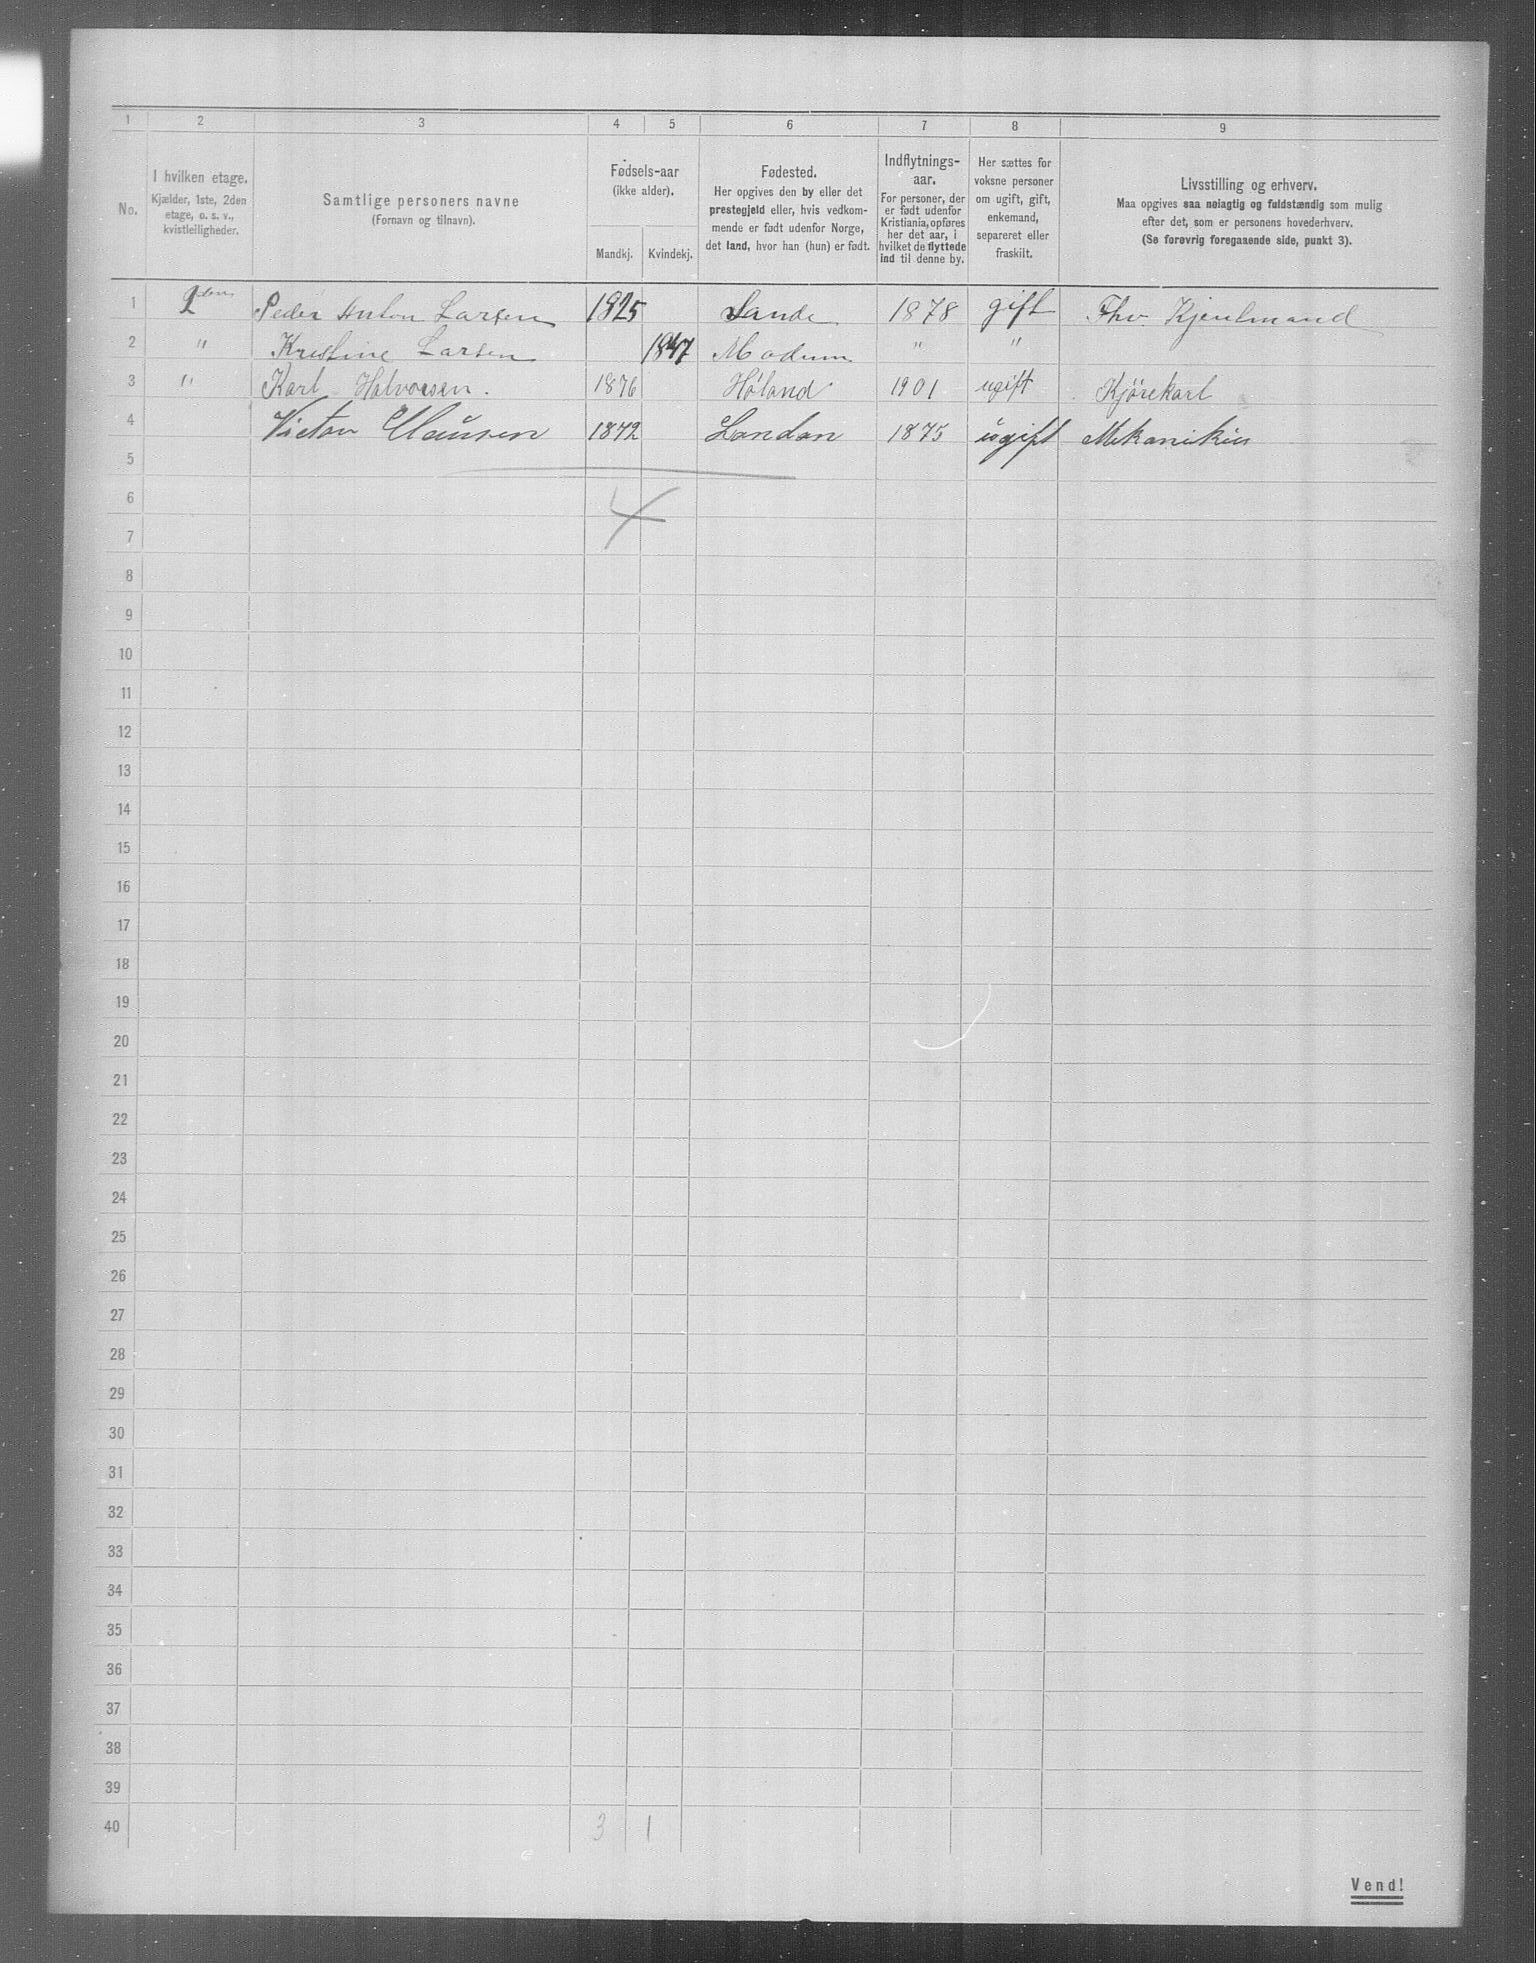 1 2 3 4 5 6 7 8 9
No.
I hvilken etage.
Kjælder, 1ste, 2den
etage, o. s. v.,
kvistleiligheder.
Samtlige personers navne
(Fornavn og tilnavn).
Fødsels-aar
(ikke alder).
Mandkj. Kvindekj.
Fødested.
Her opgives den by eller det
prestegjeld eller, hvis vedkom-
mende er født udenfor Norge,
det land, hvor han (hun) er født.
Indflytnings-
aar.
For personer, der
er født udenfor
Kristiania, opføres
her det aar, i
hvilket de flyttede
ind til denne by.
Her sættes for
voksne personer
om ugift, gift,
enkemand,
separeret eller
fraskilt.
Livsstilling og erhverv.
Maa opgives saa nøiagtig og fuldstændig som mulig
efter det, som er personens hovederhverv.
(Se forøvrig foregaaende side, punkt 3).
1 2den Peder Anton Larsen 1825 Sande 1878 gift Fhv.
2 " Kristine Larsen 1847 Modum " "
3 " Karl Halvorsen. 1876 Høland 1901 ugift Kjørekarl
4 Victor Clausen 1872 Landan 1875 ugift Mekanikus
5
6
7
8
9
10
11
12
13
14
15
16
17
18
19
20
21
22
23
24
25
26
27
28
29
30
31
32
33
34
35
36
37
38
39
40 3 1
Vend!